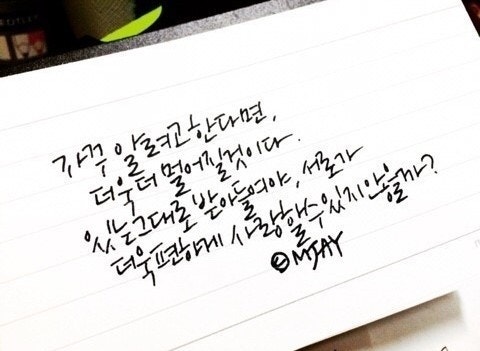 자꾸 알려고한다면,
더욱더 멀어질것이다.
있는그대로 받아들여야, 서로가
더욱편하게 사랑할수있지않을까?
@MJAY